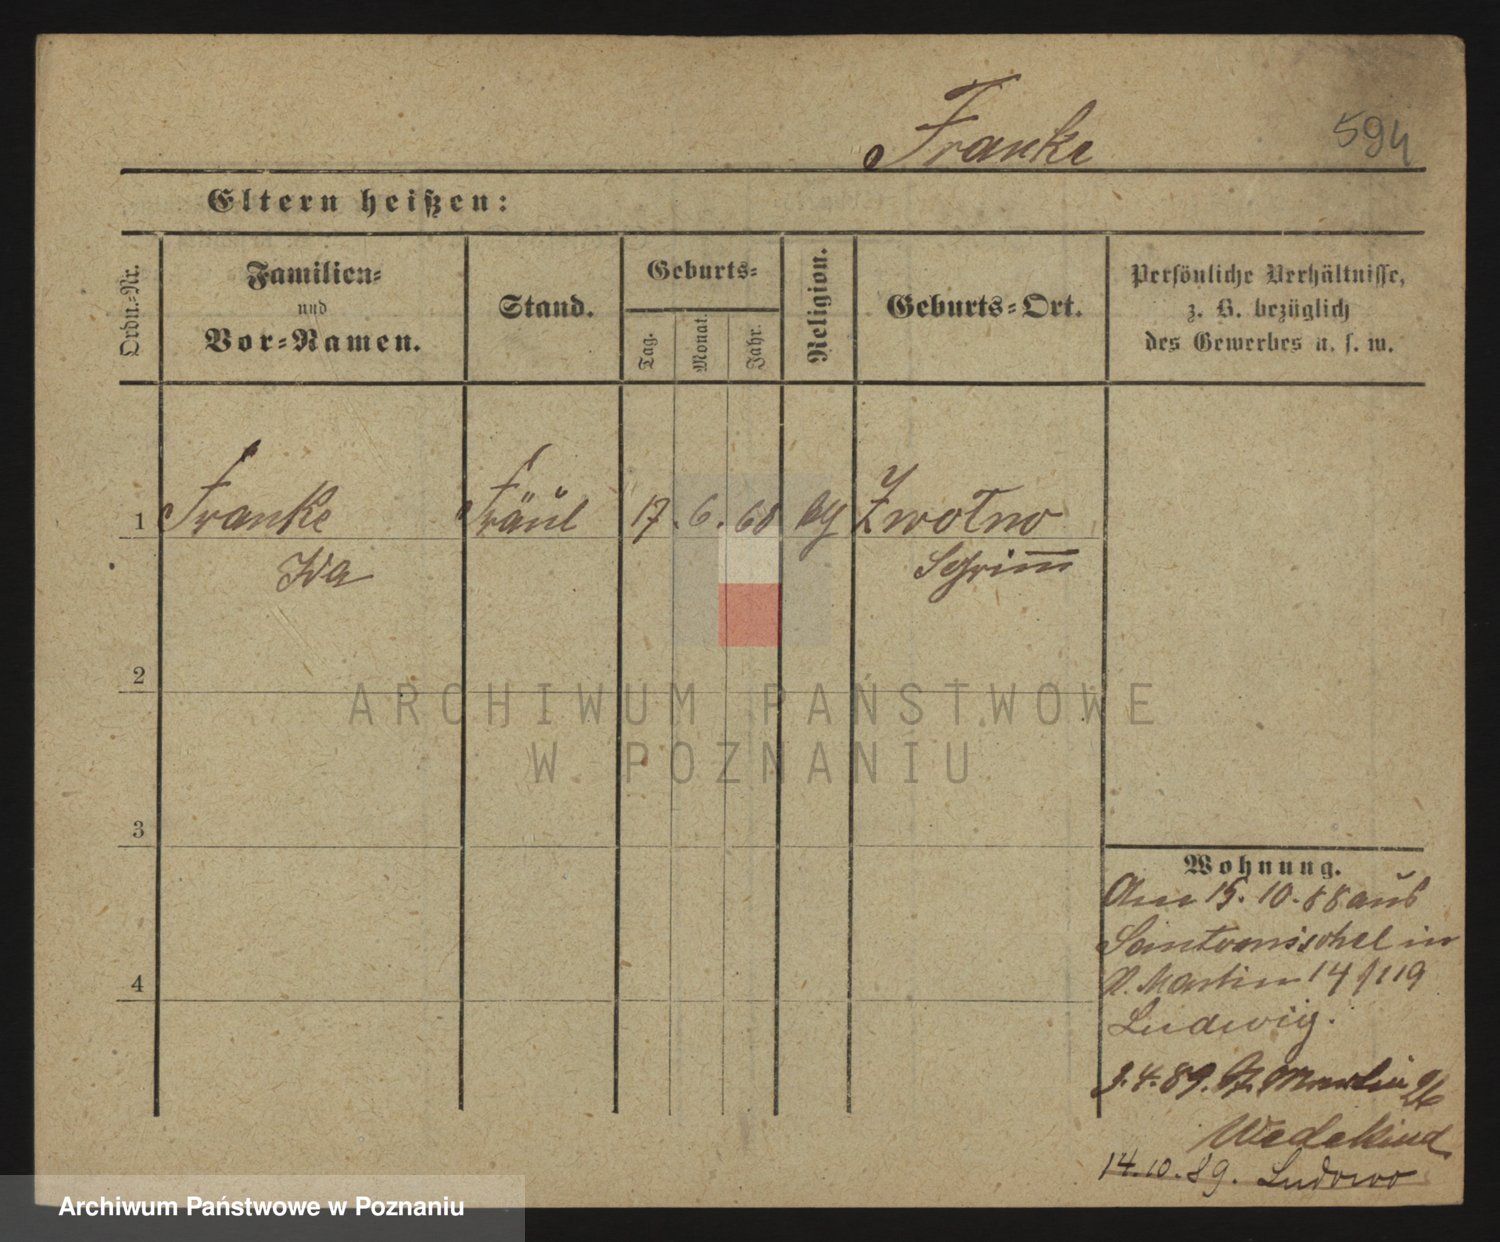 Franke
594
Eltern heißen:
Ordn.-Nr.
Familien-
und
Vor-Namen.
Stand.
Geburts-
Tag.
Monat.
Jahr.
Religion.
Geburts-Ort.
Persönliche Verhältnisse,
z. B. bezüglich
des Gewerbes u. s. w.
1 Franke Fräul 17. 6. 68 Zwolno
Ida Schrimm
2
3
4
Wohnung.
Am 15. 10. 88 aus
Santomischel in
St. Martin 14/119
Ludwig.
3. 4. 89. St. Martin 26
Wedekind
14. 10. 89. Ludowo
ARCHIWUM PAŃSTWOWE
W POZNANIU
Archiwum Państwowe w Poznaniu